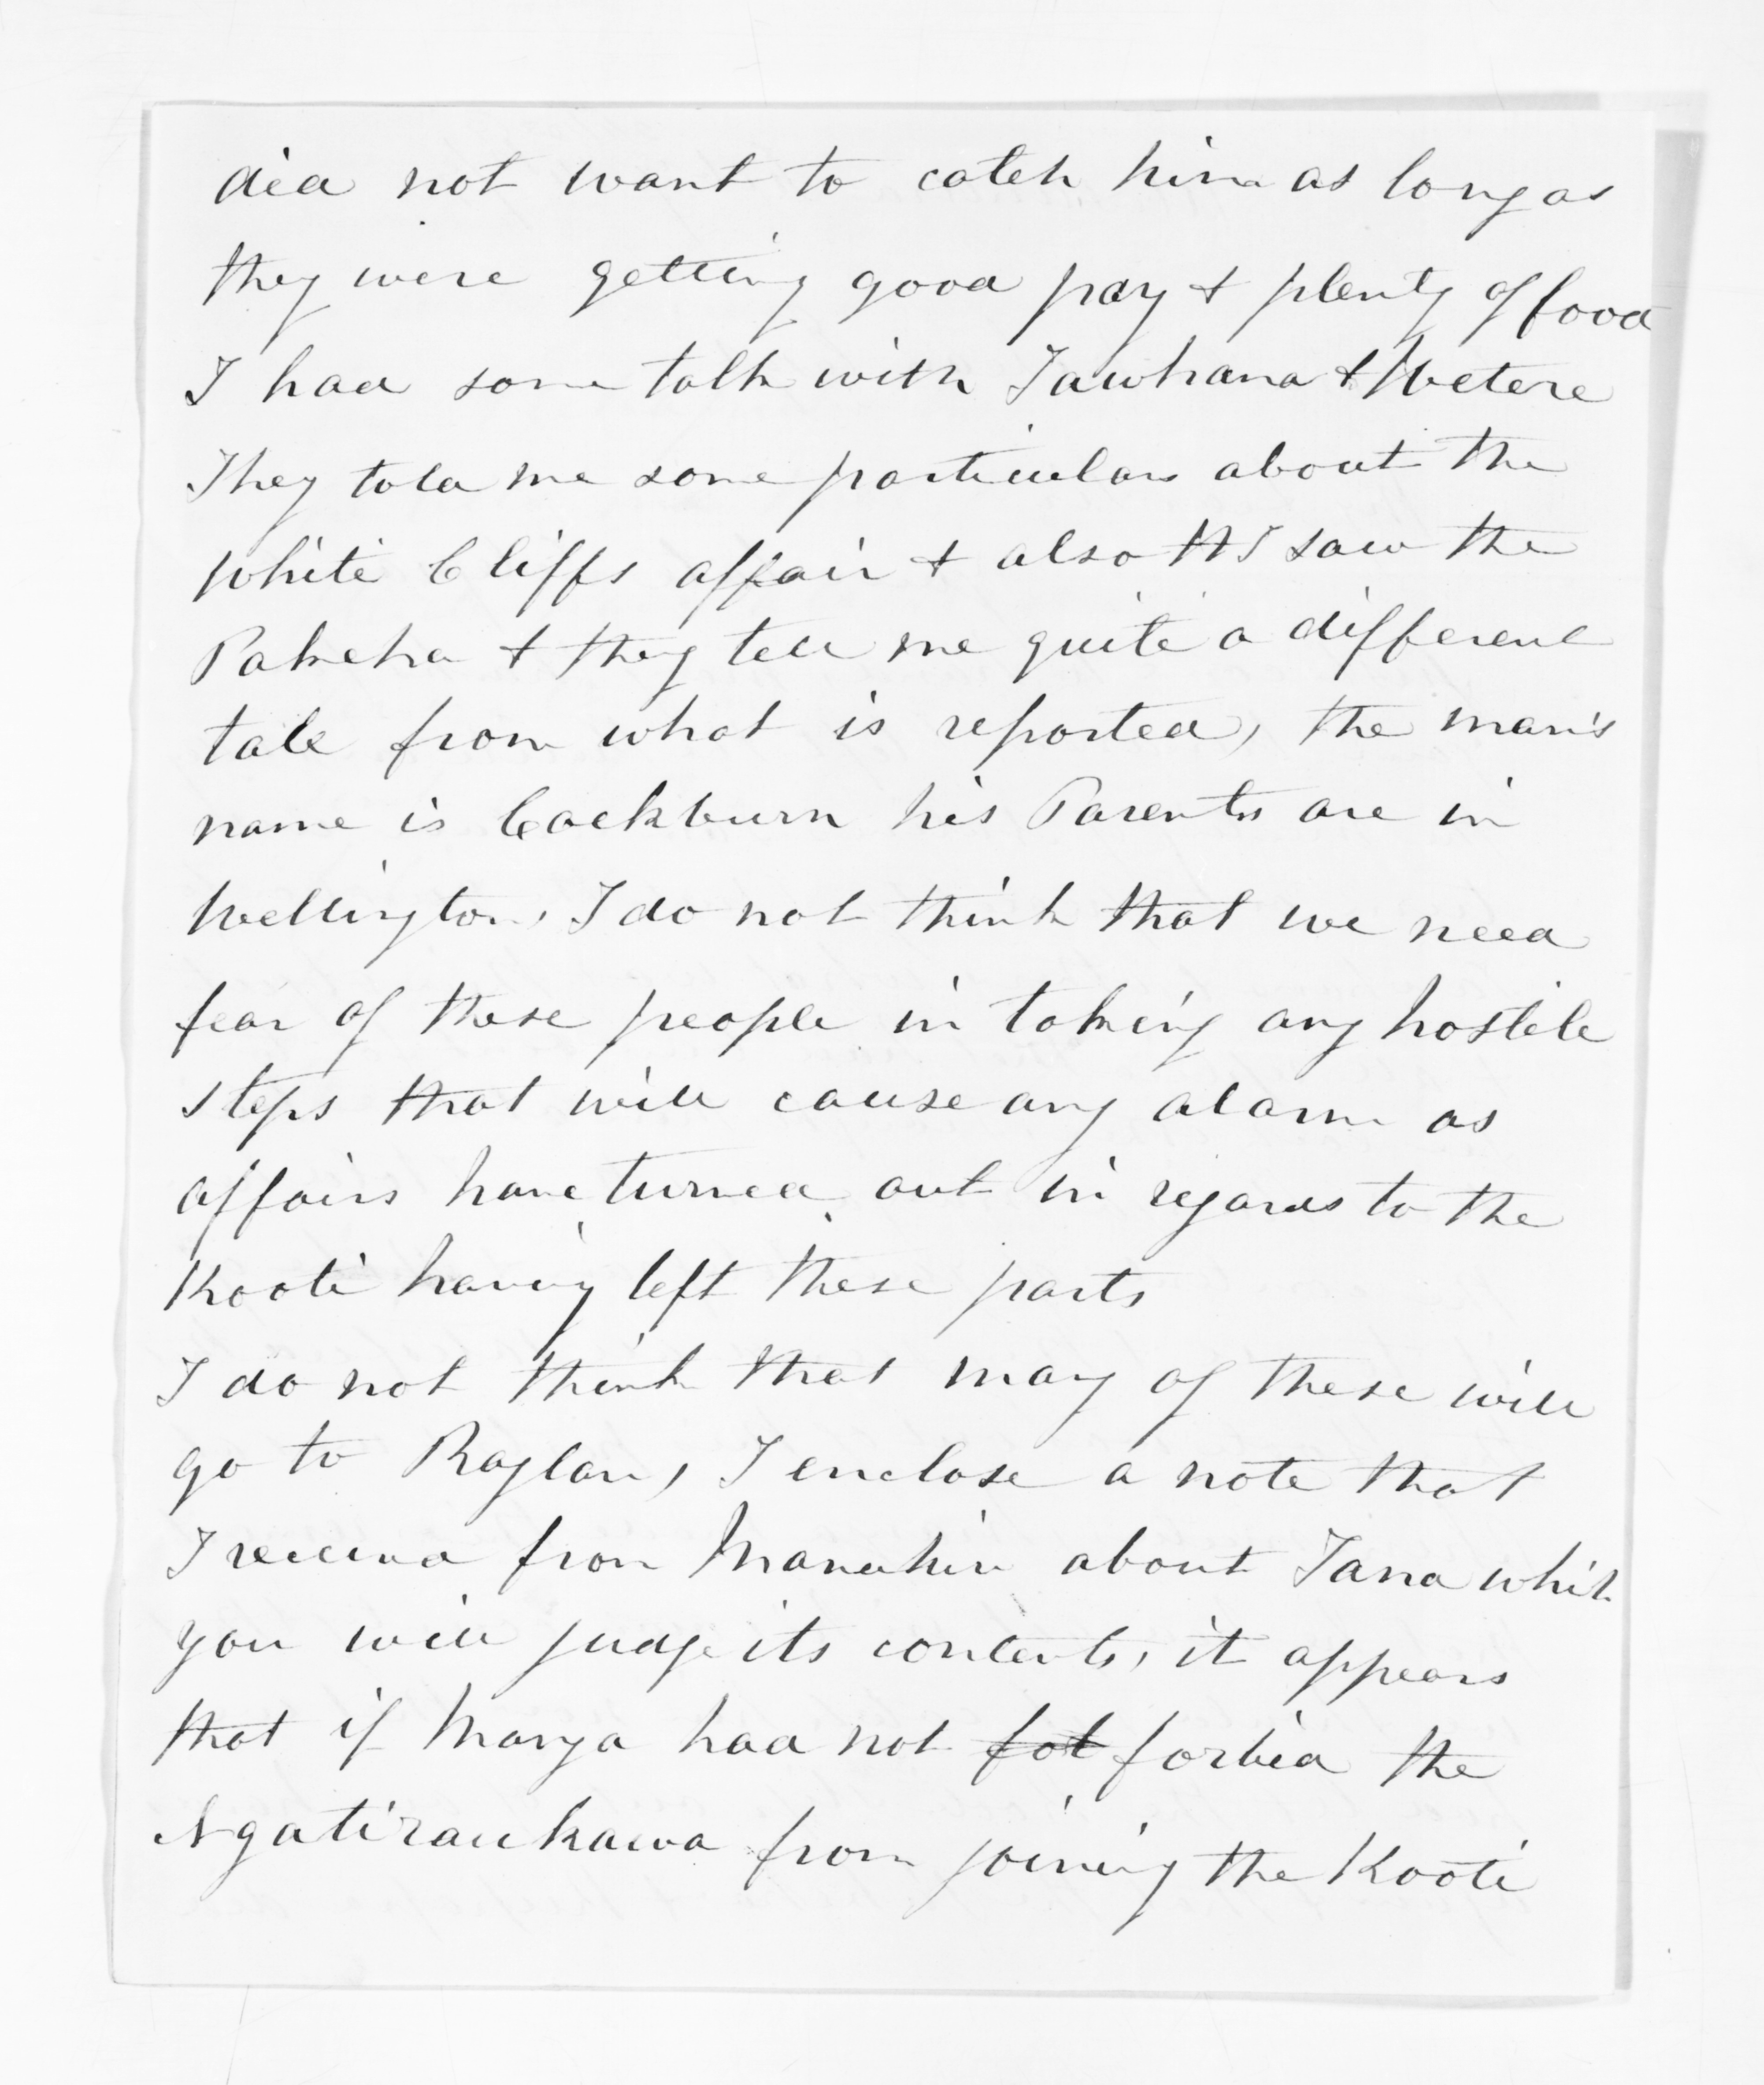 did not want to catch him as long as
they were getting good pay & plenty of food
I had some talk with Tawhana & Wetere
They told me some particulars about the
White Cliffs affair & also I saw the
Pakeha & they tell me quite a different
tale from what is reported, the man's
name is Cockburn his Parents are in
Wellington, I do not think that we need
fear of these people in taking any hostile
steps that will cause any alarm as
affairs have turned out in regards to the
Kooti having left these parts
I do not think that many of these will
go to Raglan, I enclose a note that
I received from Manuhiri about Tana which
you will judge its contents, it appears
that if Manga had not fot forbid the
Ngatiraukawa from joining the Kooti